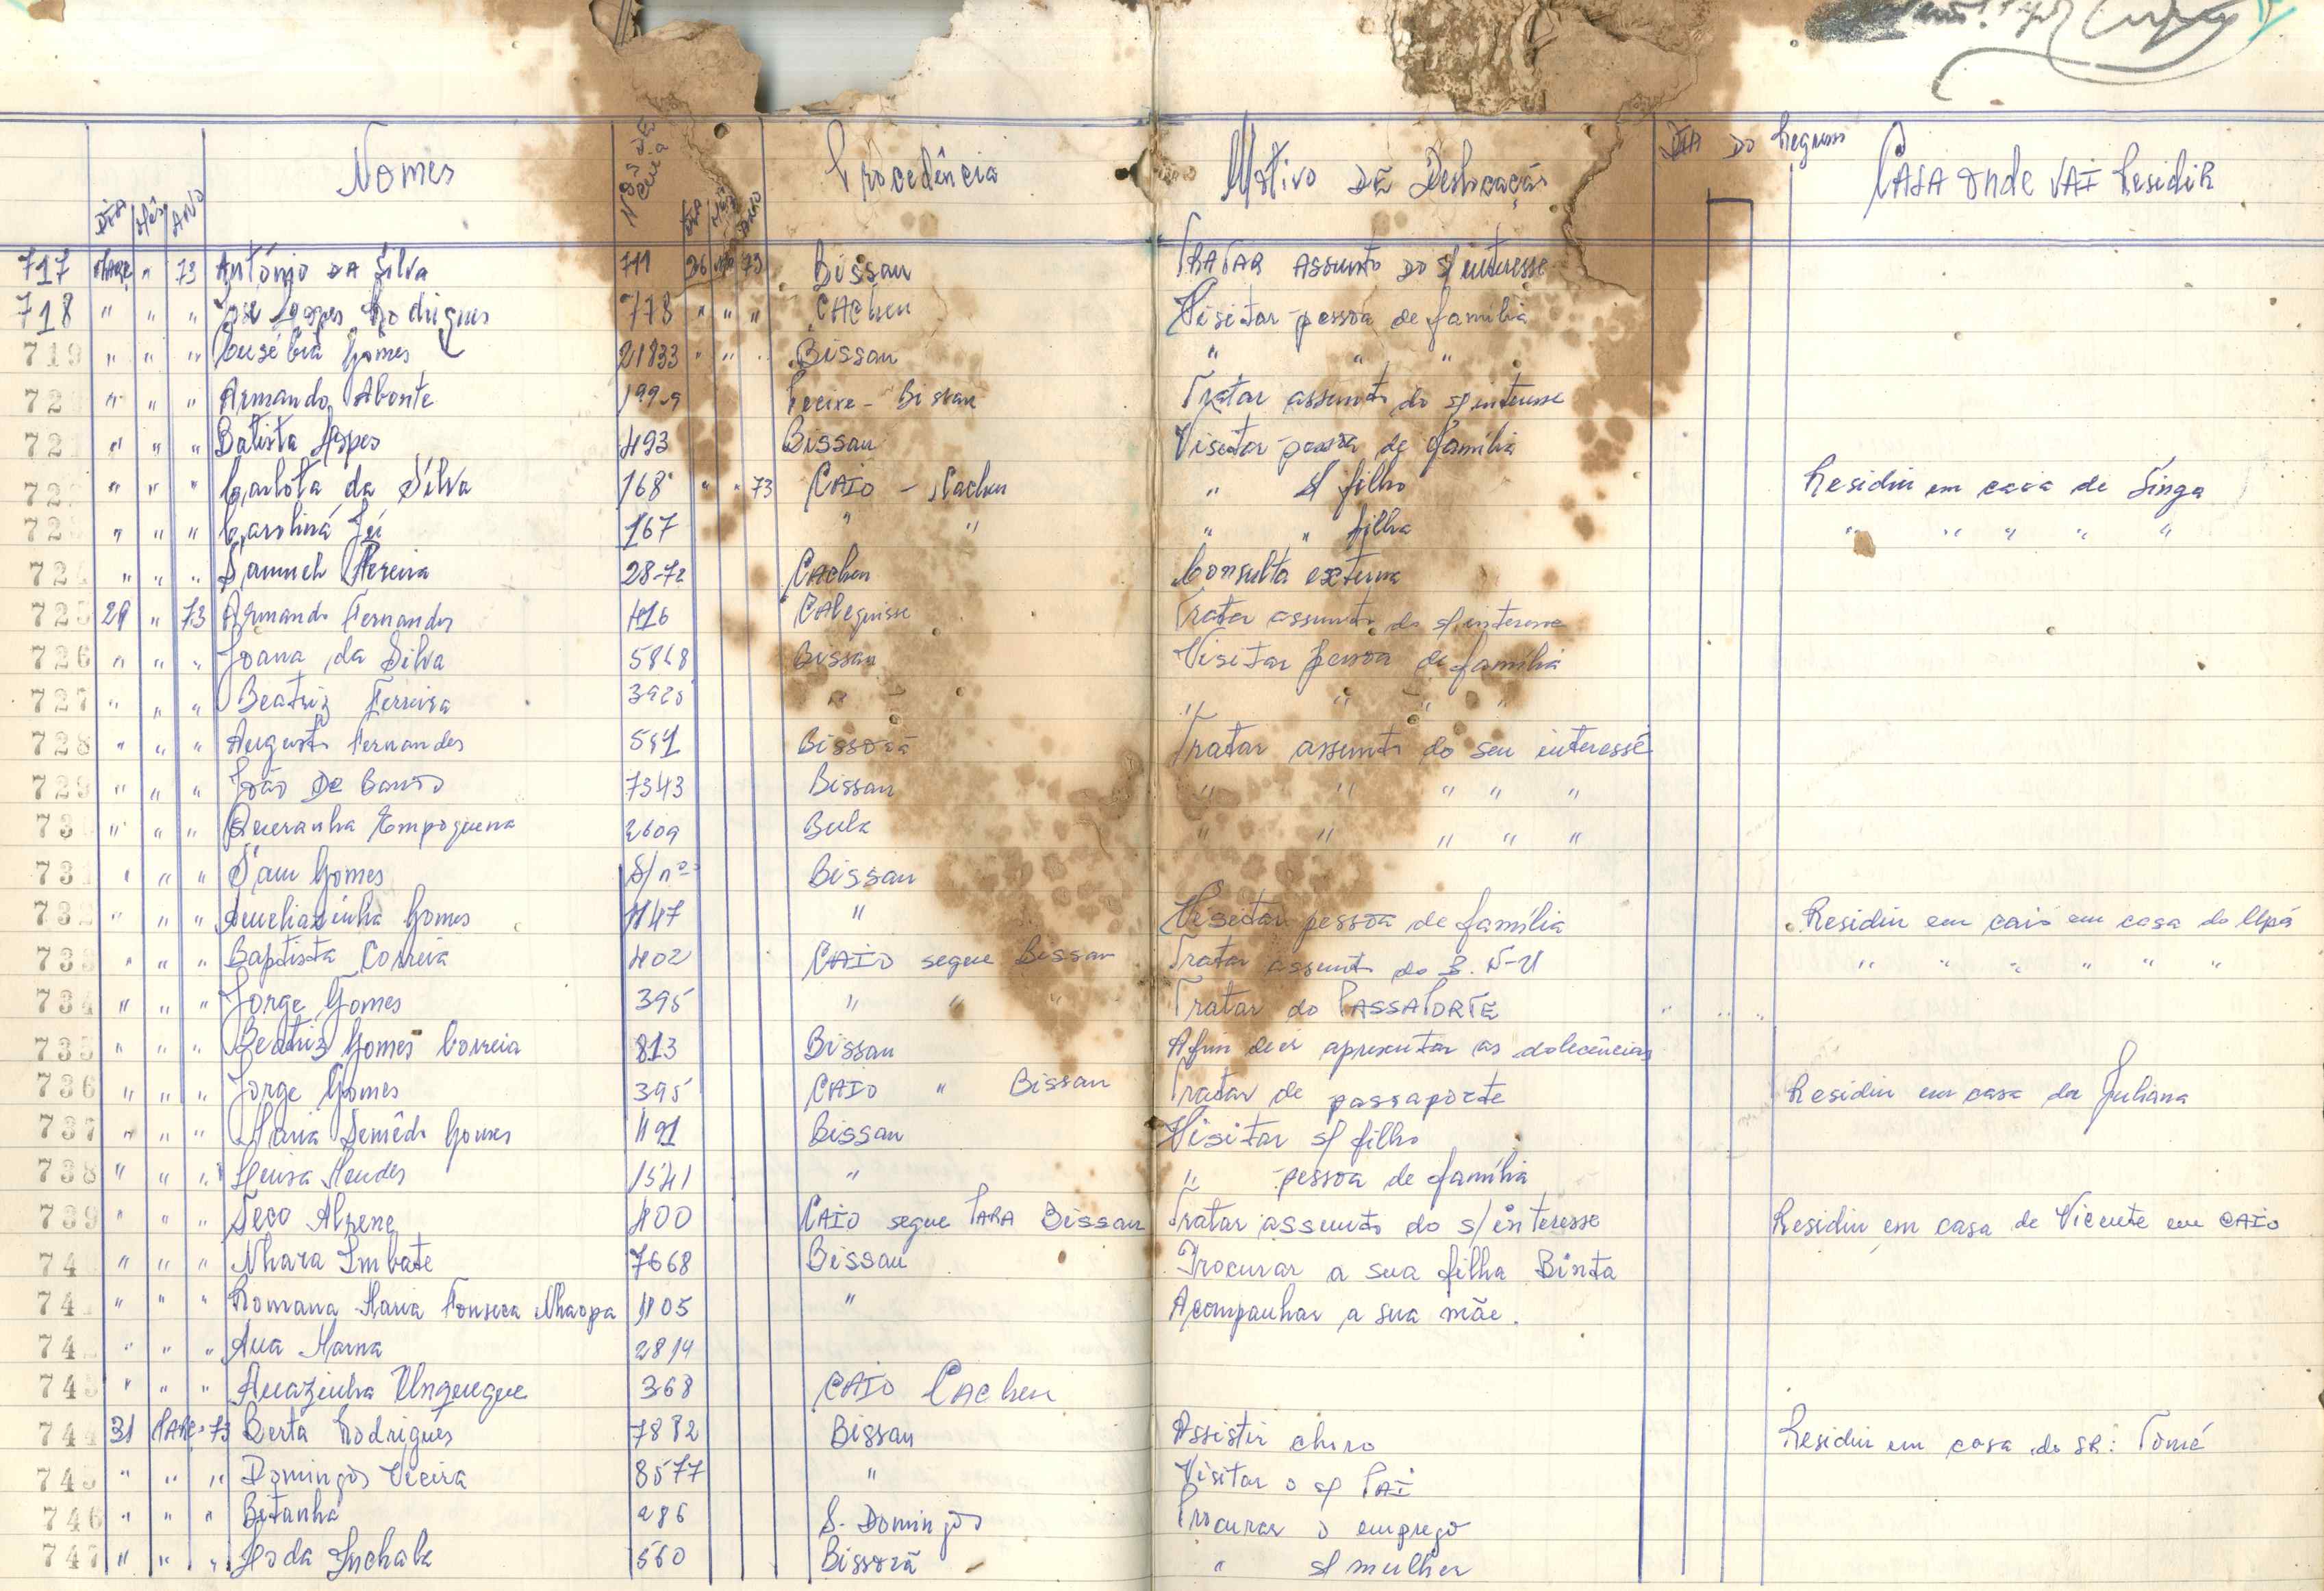 DIA Mês ANO Nomes Nos DE Guia DIA Mês ANO Procedência Motivo DE Deslocação DIA DO Regresso CASA onde VAI Residir
717 MARÇ " 73 António DA Silva 711 26 73 Bissau TRATAR ASSunto DO s/ interesse
718 " " " José Lopes Rodrigues 778 " " " CAcheu Visitar pessoa de família
719 " " " Eusébia Gomes 21833 " " Bissau " " "
72 " " " Armando Abonte Bissau Tratar assunto do s/ interesse
72 " " " Batista Lopes 493 Bissau Visitar pessoa de família
72 " " " Carlota da Silva 168 " " 73 CAIO - Cacheu " s/ filho Residir em casa de Singa
72 " " " Carolina 167 " " " " filha " " " " "
72 " " " Samuel Pereira 28-72 CAcheu Consulta externa
725 29 " 73 Armando Fernandes 416 CAlequisse Tratar assunto do s/ interesse
726 " " " Joana da Silva 5868 Bissau Visitar pessoa de família
727 " " " Beatriz Ferreira 3920 " " " " "
728 " " " Augusto Fernandes 541 Bissorã Tratar assunto do seu interesse
729 " " " João De Barros 7343 Bissau " " " " "
73 " " " Queranha Empoquena 2609 Bula " " " " "
73 " " " Sam Gomes S/nº Bissau
732 " " " Ameliazinha Gomes 1147 " Visitar pessoa de família Residir em caió em casa do Upá
733 " " " Baptista Correia 402 CAIO segue Bissau Tratar assunto do " " " " " "
734 " " " Jorge Gomes 395 " " " Tratar do PASSAPORTE " " "
735 " " " Beatriz Gomes Correia 813 Bissau Afim de ir apresentar as dolecências
736 " " " Jorge Gomes 395 CAIO " Bissau Tratar de passaporte Residir em casa da Juliana
737 " " " Maria Semêdo Gomes 1191 Bissau Visitar s/ filho
738 " " " Mendes 1541 " " pessoa de família
739 " " " Seco 400 CAIO segue PARA Bissau Tratar assunto do s/ interesse Residir em casa de Vicente em CAIO
74 " " " Nhara Imbate 7668 Bissau Procurar a sua filha Binta
74 " " " Romana Maria Fonseca Nhaopa 1105 " Acompanhar a sua mãe.
74 " " " Aua Mama 2814
743 " " " Anazinha Unguegue 368 CAIO CAcheu
744 31 MARÇ 73 Berta Rodrigues 7882 Bissau Assistir choro Residir em casa do SR: Tomé
745 " " " Domingos Vieira 8577 " Visitar o s/ PAI
746 " " " Bitanhá 286 S. Domingos Procurar o emprego
747 " " " Inchala 560 Bissorã " s/ mulher